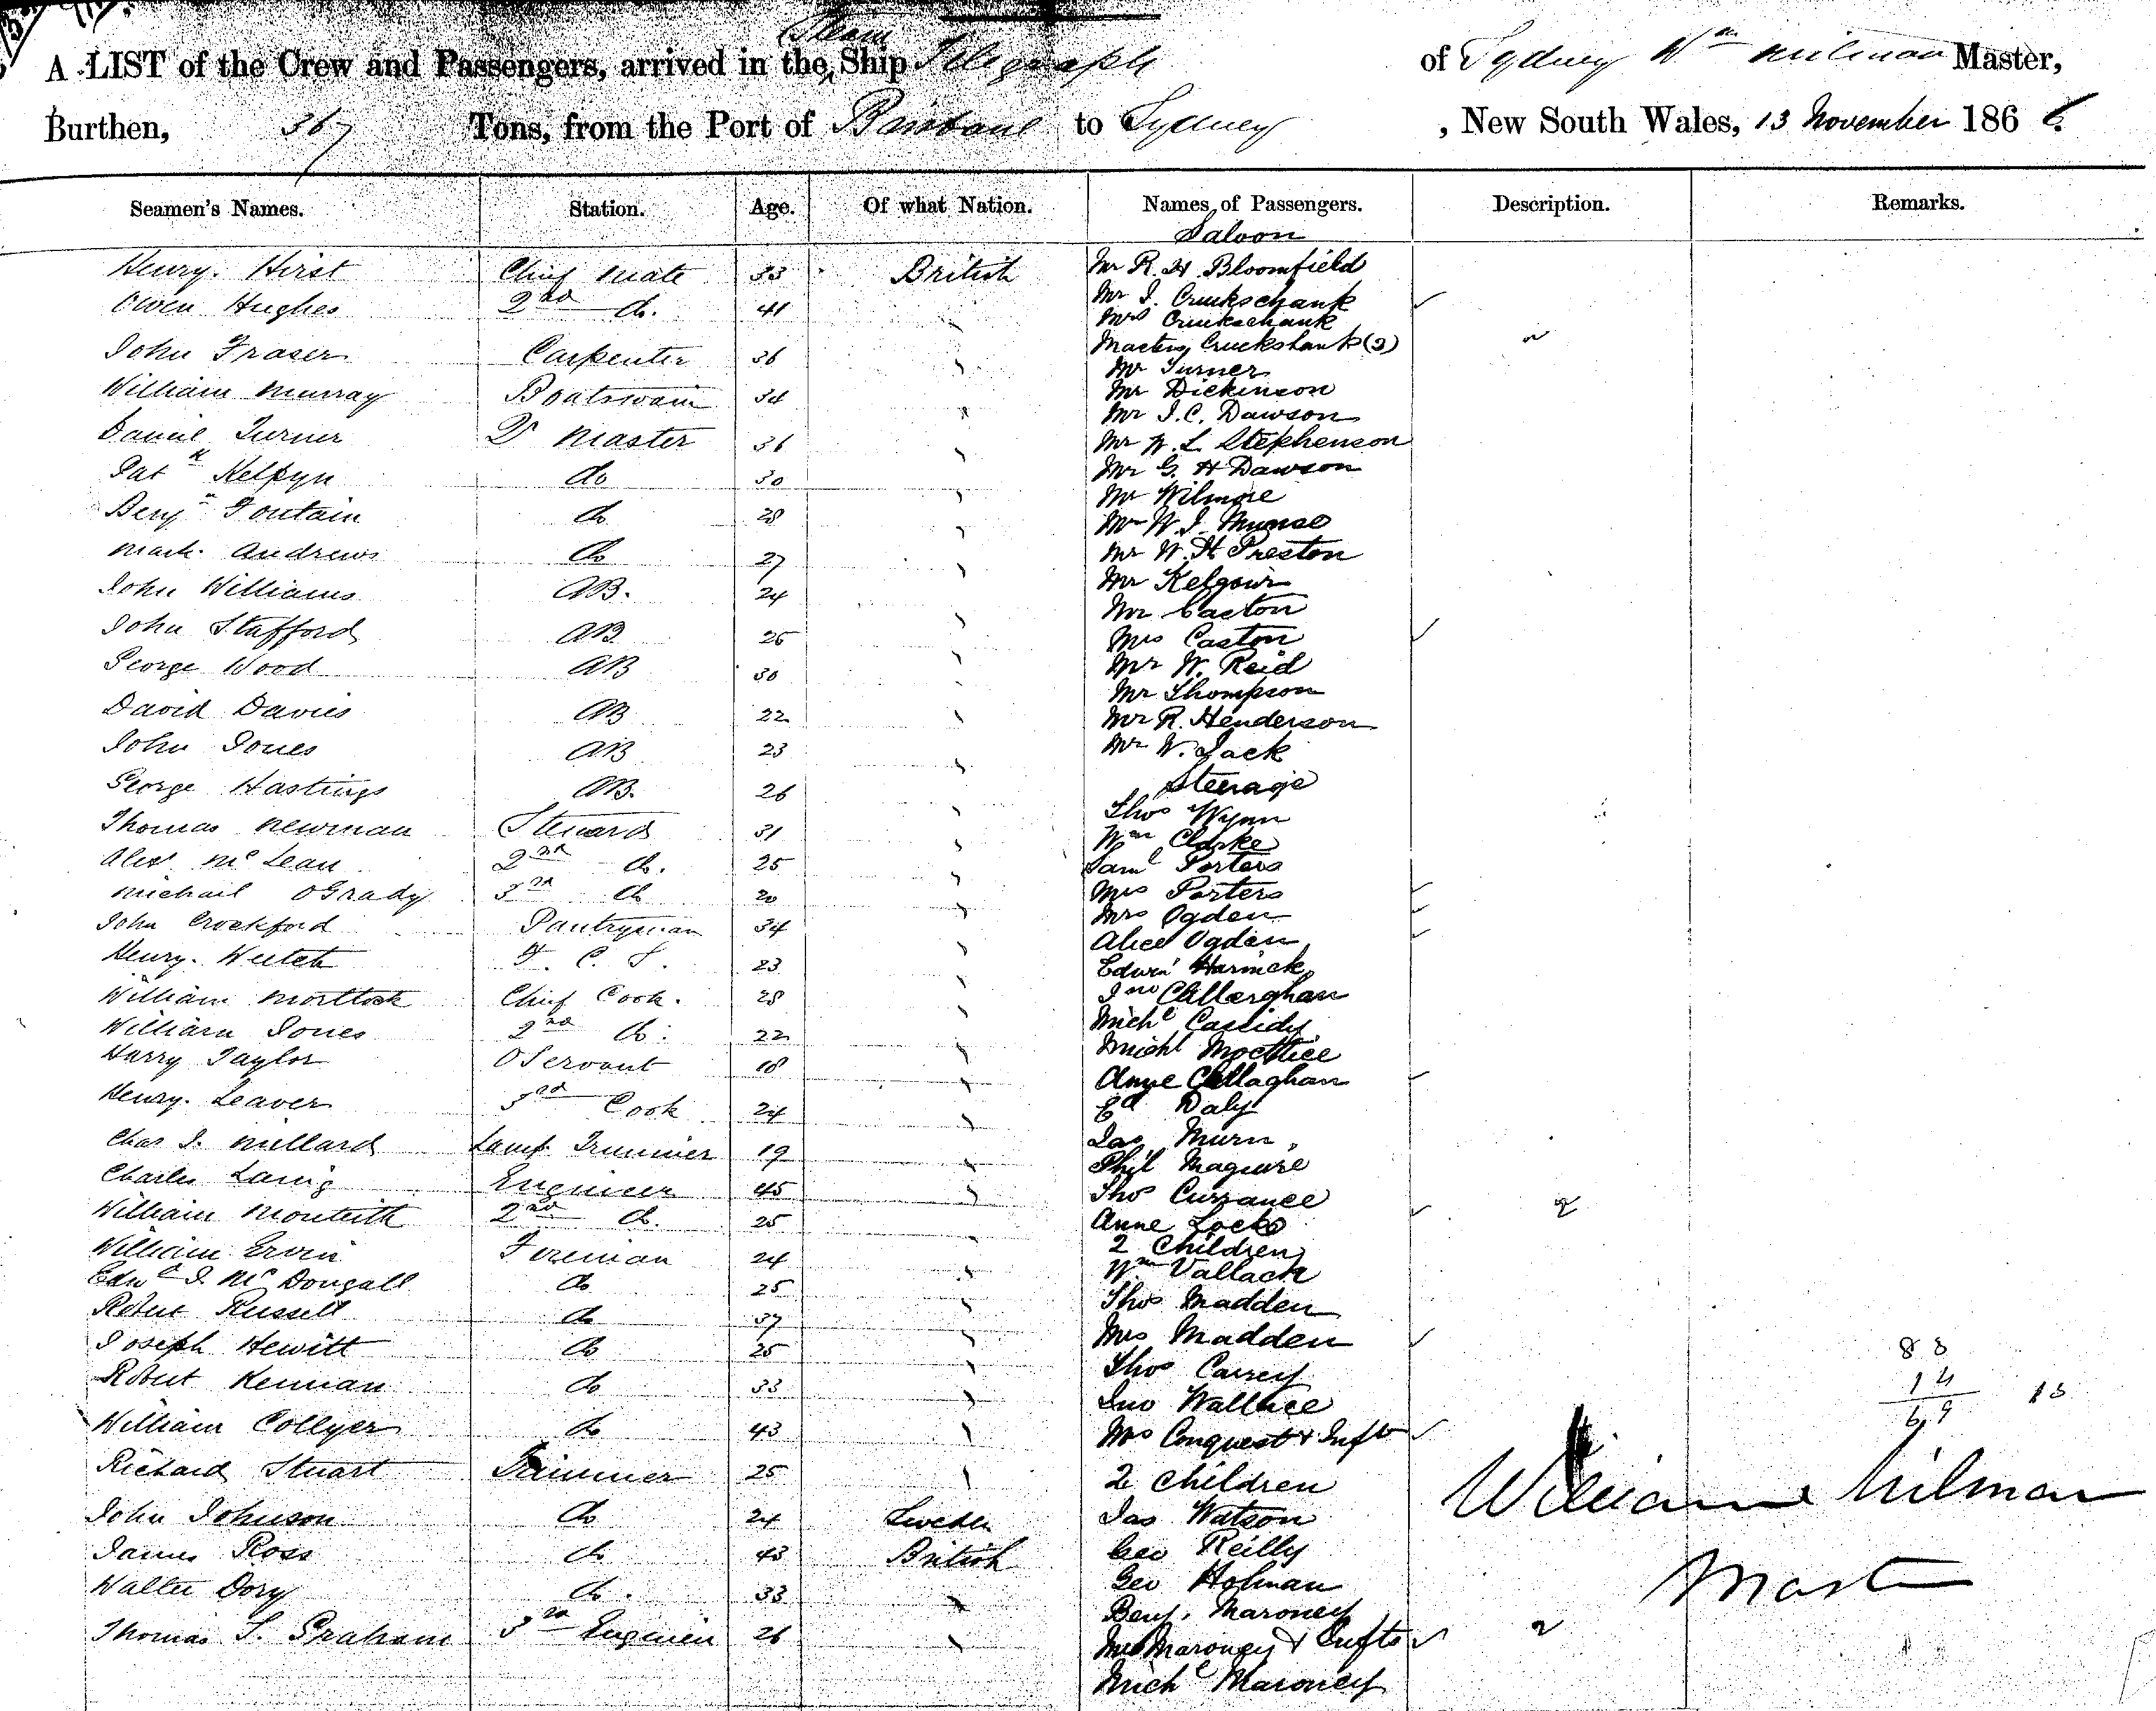 A LIST of the Crew and Passengers, arrived in the Steam Ship Telegraph of Sydney Wm Milman Master,
Burthen, 367 Tons, from the Port of Brisbane to Sydney, New South Wales, 13 November 186 6.
Seamen's Names. Station. Age. Of what Nation. Names of Passengers. Description. Remarks.
Saloon
Henry Hirst Chief Mate 33 British Mr R. H. Bloomfield
Owen Hughes 2nd do. 41 Mr J. Cruckschank
Mrs Cruckschank
John Fraser Carpenter 36 Masters Cruckshank (3)
Mr Turner
William Murray Boatswain 34 Mr Dickinson
Mr J. C. Dawson
Daniel Turner Qr Master 36 Mr W. L. Stephenson
Patk Kelpyn do 30 Mr G. H Dawson
Mr Wilmore
Benjn Fontain do 28 Mr W. J.
Mark Andrews do 27 Mr W. H Preston
John Williams AB. 24 Mr Kelgour
Mr Caston
John Stafford AB 25 Mrs Caston
George Wood AB 30 Mr W. Reid
Mr Thompson
David Davies AB 22 Mr R. Henderson
John Jones AB 23 Mr W. Jack
George Hastings AB. 26 Steerage
Thos Wynn
Thomas Newman Steward 31 Wm Clarke
Alexr McLean 2nd do. 25 Saml Porters
Michael OGrady 3rd do 20 Mrs Porters
John Crockford Pantryman 34 Mrs Ogden
Alice Ogden
Henry F. C. S. 23 Edwin Harrick
William Mortlock Chief Cook. 28 Jno Callerghan
William Jones 2nd do. 22 Michl Cassidy
Harry Taylor OServant 18 Michl
Anne Callaghan
Henry Leaver 3rd Cook 24 Ed Daly
Chas J. Millard Lamp Trimmer 19 Jas Murn
Phil Maguire
Charles Laing Engineer 45 Thos Currance
William Monteith 2nd do. 25 Anne Locke 2
William Ervin Foreman 24 2 Children
Edwd J. McDougall do 25 Wm Vallack
Robert Russell do 37 Thos Madden
Joseph Hewitt do 25 Mrs Madden 83
Robert Kennan do 33 Thos Carrey 14 13
Jno Wallace 69
William Collyer do 43 Mrs Conquest & Inft
Richard Stuart Trimmer 25 2 Children William Milman
John Johnson do 24 Sweden Jas Watson
James Ross do 43 British Geo Reilly
Walter Dory do. 33 Geo Holman Master
Benj. Maroney
Thomas S. Graham 3rd Engineer 26 Mrs Maroney & Infts 2
Michl Maroney